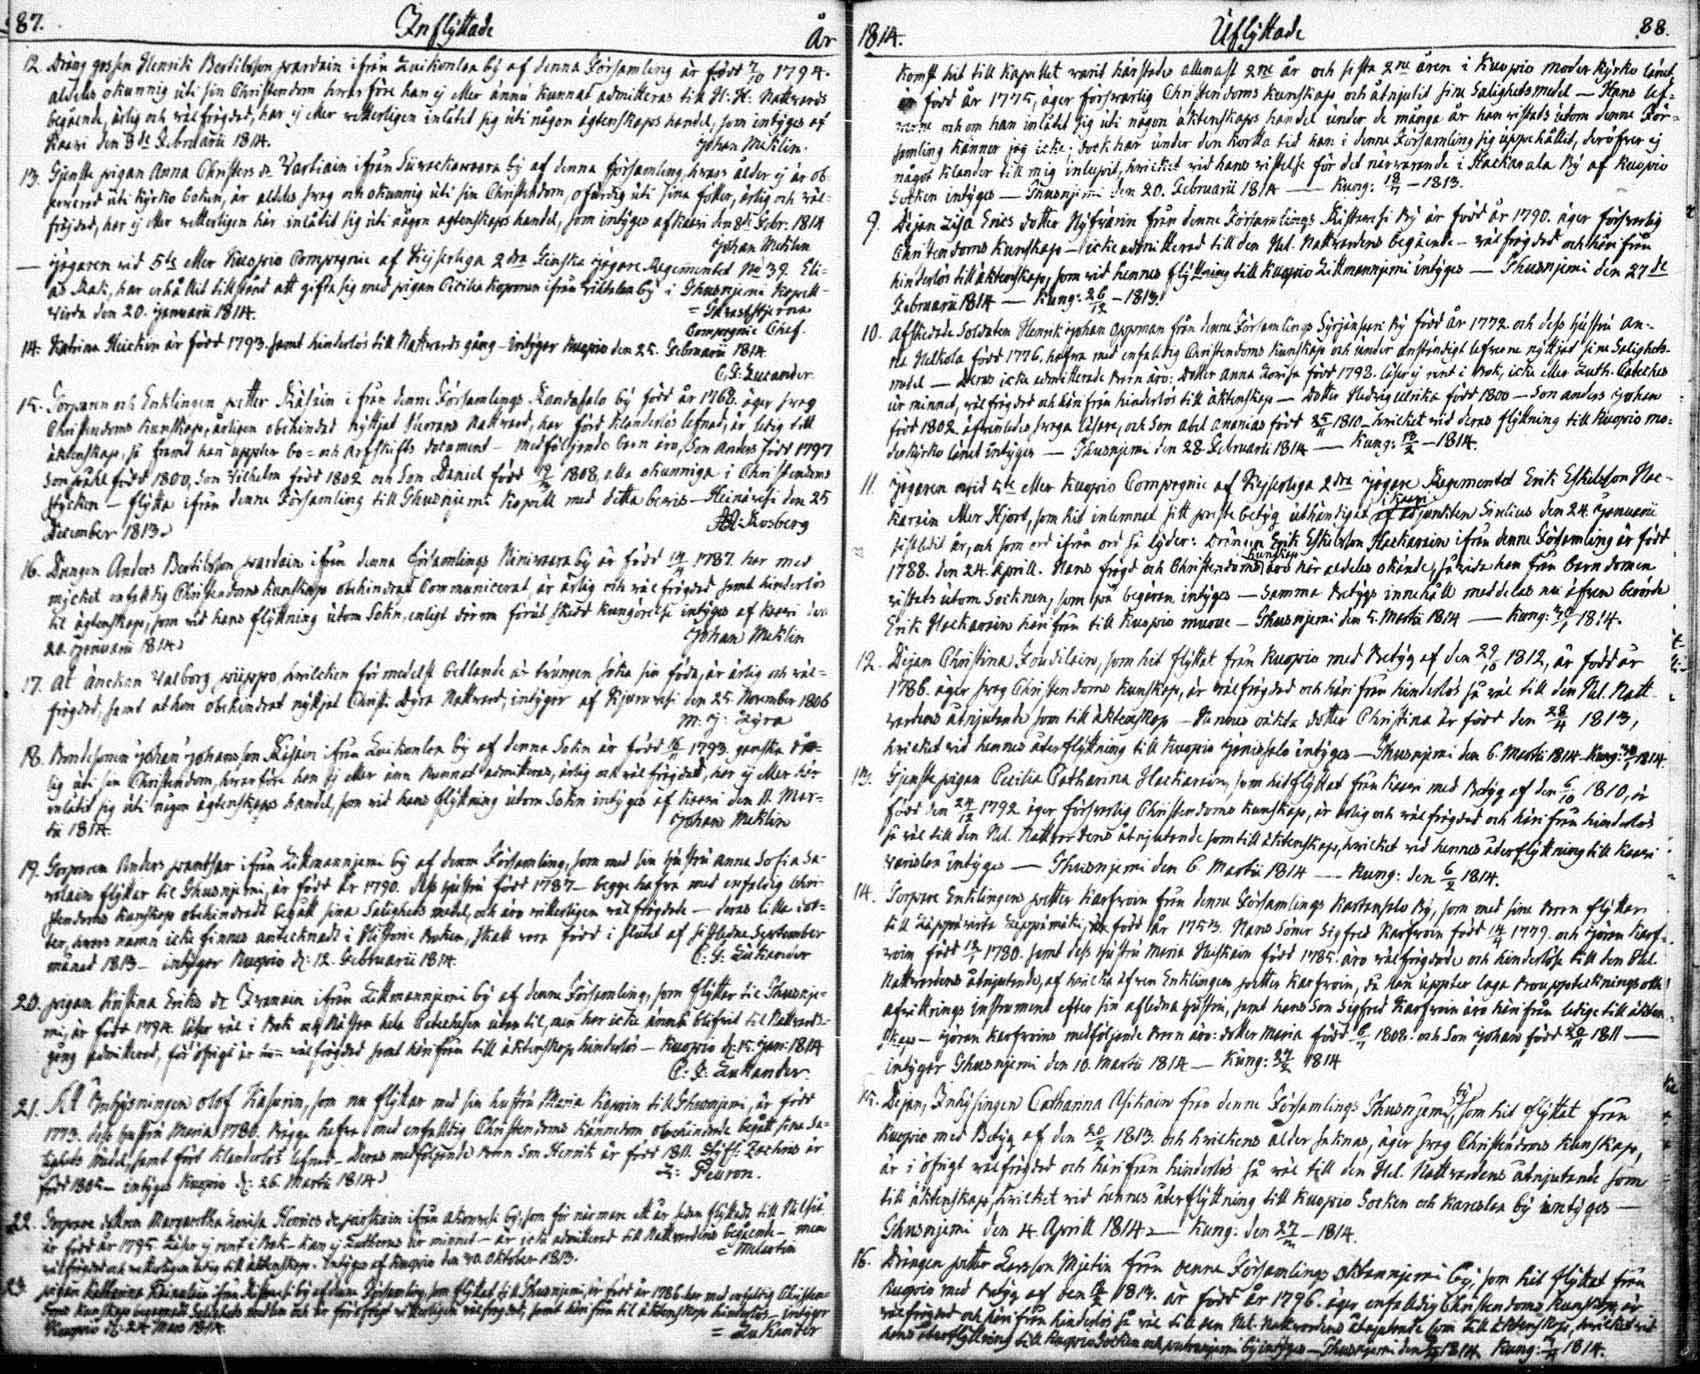 87. Inflyttade År
12. Dräng gossen Henrik Bertilsson Wartiain ifrån Zuikonlax by af denna Församling är född 7/10 1794.
aldeles okunnig uti sin Christendom hvarföre han ej eller ännu kunnat admitteras till H: H: Nattvards
begående, ärlig och välfrägdad, har ej eller vetterligen inlåtit sig uti någon ägtenskaps handel, som intyges af
Kaavi den 8de Februarii 1814. Johan Meklin.
13. Tjenste pigan Anna Christers dr Vartiain ifrån by af denna församling, hvars ålder ej är ob-
serverad uti kyrko boken, är aldeles svag och okunnig uti sin Christendom, ofärdig uti sina fötter, ärlig och väl-
frägdad, har ej eller vetterligen här inlåtit sig uti någon ägtenskaps handel, som intyges af Kaavi den 8de Febr. 1814
Johan Meklin
— Jägaren vid 5te eller Kuopio Compagnie af Kejserliga 2dra Finska Jägare Regementet No 39. Eli-
as Mak, har erhållit tillstånd att gifta sig med pigan Cecilia Koponen ifrån by i Thusnjemi Kapell-
Virda den 20. Januarii 1814.
Compagnie Chef.
14. Katrina Heickin är född 1793. samt hinderlös till Nattvards gång - intyger Kuopio den 25. Februarii 1814.
C. J: Zukander.
15. Torparen och Enklingen Petter Räsäin i från denne Församlings Kandasalo by född år 1768. äger svag
Christendoms kunskap, årligen obehindrat nyttjat Herrans Nattvard, har fört klanderlös lefnad, är ledig till
äktenskap, så framt han uppter bo- och Arfskifts document - medföljande barn äro, Son Anders född 1797
Son Påhl född 1800, Son Vilhelm född 1802 och Son Daniel född 1808, alla okunniga i Christendoms
stycken - flytta ifrån denne Församling till Thusnjemi Kapell med detta bevis - Heinävesi den 25
December 1813. Kosberg
16. Drängen Anders Bertilsson Wartiain ifrån denna församlings by är född 1787. har med
mycket enfaldig Christendoms kunskap obehindrat Communicerat, är ärlig och välfrägdad samt hinderlös
til ägtenskap, som vid hans flyttning utom Sokn, enligt derom förut skedd kungörelse intyges af Kaavi den
20. Januarii 1814. Johan Meklin
17. At änckan Valborg Piippo, hvilcken för medelst betlande är tvungen söka sin föda, är ärlig och väl-
frägdad, samt at hon obehindrat nyttjat Christi dyra Nattvard, intyger af Kjurvesi den 25. November 1806
M. J:
18. Bondesonen Johan Johansson Räsäin ifrån Zuikonlax by af denna Sokn är född 1793. ganska
lig uti sin Christendom, hvarföre han ej eller ann kunnat admitteras, ärlig och välfrägdad, har ej eller här
inlåtit sig uti någon ägtenskaps handel, som vid hans flyttning utom Sokn intyges af Kaavi den 11. Mar-
tii 1814. Johan Meklin
19. Torparen Anders ifrån Littmannjemi by af denne Församling, som med sin hustru Anna Sofia Sa-
volain flyttar til Thusnjemi, är född år 1790. dess hustru född 1787 - begge hafva med enfaldig Chri-
stendoms kunskap obehindradt begått sina Salighets medel, och äro vetterligen välfrägdade - deras lilla dot-
ter, hvars namn icke finnes antecknadt i Historie Boken, skall vara född i slutet af sistledne September
månad 1813 - intyger Kuopio d: 12. Februarii 1814. C. J: Zukander
20. Pigan Kristina Eriks dr Ivanain ifrån Littmannjemi by af denne Församling, som flyttar til Thusnje-
mi, är född 1794. läser väl i Bok och Nästan hela Catechesen utan til, men har icke ännu blifvit til Nattvards
gång admitterad, för öfrigt är välfrägdad samt härifrån till äktenskap hinderlös - Kuopio d: 15. Jan: 1814
C: J: Zukander.
21. Att Inhysningen Olof Kasurin, som nu flyttar med sin hustru Maria till Thusnjemi, är född
1773. dess hustru Maria 1780. Bägge hafva med enfalldig Christendoms kännedom obehindrade begått sina Sa-
lighets Medel, samt fört klanderlöst lefnad - deras medföljande Barn Son Henrik är född 1811. Zachris är
född 1805 - intyges Kuopio d: 26. Martii 1814. Z: Peuron.
22. Torpare dottren Margaretha Lovisa Henrics dr ifrån by, som för närmare ett år sedan flyttade till
är född år 1795. läser ej rent i Bok - kan ej Lutherus ur minnet - är icke admitterad till Nattvardens begående - men
välfrägdad och vetterligen ledig till äktenskap. Intyges af Kuopio den 30. Oktober 1813.
23. Pigan Katharina ifrån by af denna Församling, som flyttat till Thusnjemi, är född år 1786 har med enfaldig Christen-
doms kunskap begagnat Salighets medlen och är för öfrigt vetterligen välfrägdad, samt härifrån til äktenskap hinderlös - intyger
Kuopio d: 24. Mars 1814. = Zukander
1814. Utflyttade 88.
komst hit till Kapellet varit härstädes allenast 2ne år och sista 2ne åren i Kuopio moder kyrko länet,
är född år 1775, äger försvarlig Christendoms kunskap och åtnjutit sine Salighetsmedel - Hans lef-
verne och om han inlåtit sig uti någon äktenskaps handel under de många år han vistats utom denne För-
samling känner jag icke; dock har under den korta tid han i denne Församling sig uppehållit, deröfver ej
något klander till mig inlupit, hvilcket vid hans vistelse för det närvarande i Hackarala By af Kuopio
Socken intyges - Thusnjemi den 20. Februarii 1814 — Kung: 18/7 - 1813.
9. Pejan Lisa Erics dotter Nyfvänin från denne Församlings By är född år 1790. äger försvarlig
Christendoms kunskap - icke admitterad till den Hel. Nattvardens begående - välfrägdad och härifrån
hinderlös till äktenskap, som vid hennes flyttning till Kuopio Littmannjemi intyges - Thusnjemi den 27de
Februarii 1814 - Kung: 26/12 - 1813.
10. Afskedade Soldaten Henrik Johan Oppman från denne Församlings By född år 1772. och dess hustru An-
na född 1776. hafva med enfaldig Christendoms kunskap och under anständigt lefverne nyttjad sine Salighets-
medel - Deras icke admitterade Barn äro: Dotter Anna Lovisa född 1798. läser ej rent i Bok, icke eller Luth: Cateches
ur minnet, välfrägdad och härifrån hinderlös till äktenskap - Dotter Hedvig Ulrika född 1800 - Son Anders Johan
född 1802. svaga läsare, och Son Abel Ananias född 25/11 1810 - hvilcket vid deras flyttning till Kuopio mo-
derkyrko länet intyges - Thusnjemi den 28. Februarii 1814 — Kung: - 1814.
11. Jägaren vid 5te eller Kuopio Compagnie af Kejserliga 2dra Jägare Regementet Erik Eskilsson Hac-
karain eller Hjort, som hit inlemnat sitt preste betyg uthändigat af Kaavi adjunkten den 24. Januarii
sistledit år, och som ord ifrån ord så lyder: Drängen Erik Eskilsson Hackarain ifrån denne Församling är född
1788. den 24. Aprill. Hans frägd och Christendoms kunskap äro här aldeles okände, så vida han från barndomen
vistats utom Socknen, som på begäran intyges - Samma Betygs innehåll meddelas nu äfven berörde
Erik Hackarain härifrån till Kuopio - Thusnjemi den 5. Martii 1814 — Kung: 30/1 1814.
12. Pejan Christina Toudilain, som hit flyttat från Kuopio med Betyg af den 29/10 1812, är född år
1786. äger svag Christendoms kunskap, är välfrägdad och härifrån hinderlös så väl till den Hel. Natt
vardens åtnjutande som till äktenskap - Hennes oäkta dotter Christina är född den 28/4 1813,
hvilcket vid hennes återflyttning till Kuopio intyges - Thusnjemi den 6. Martii 1814 - Kung: 30/1 1814.
13. Tjenste pigan Cecilia Catharina Hackarain, som hit flyttat från Kaavi med Betyg af den 6/10 1810, är
född den 24/12 1792 äger försvarlig Christendoms kunskap, är ärlig och välfrägdad och härifrån hinderlös
så väl till den Hel. Nattvardens åtnjutande som till äktenskap, hvilcket vid hennes återflyttning till Kaavi
intyges — Thusnjemi den 6 Martii 1814 — Kung: den 6/2 1814.
14. Torpare Enklingen Petter Karfvoin från denne Församlings Kartensalo By, som med sine Barn flyttar
till är född år 1753. Hans Söner Sigfred Karfvoin född 1779. och Jöran Karf-
voin född 1780. samt dess hustru Maria född 1785. äro välfrägdade och hinderlöse till den Hel.
Nattvardens åtnjutande, af hvilcka äfven Enklingen Petter Karfvoin, då han uppter laga Bouppteckning och
afvittrings instrument efter sin aflidna hustru, samt hans Son Sigfred Karfvoin äro härifrån ledige till äkten-
skap - Jöran Karfvoins medföljande Barn äro: dotter Maria född 1808. och Son Johan född 20/11 1811 —
intyger Thusnjemi den 10. Martii 1814 - Kung: 27/2 1814
15. Pejan, Inhysingen Catharina Asikain från denne Församlings Thusnjemi by, som hit flyttat från
Kuopio med Betyg af den 20/2 1813. och hvilckens ålder saknas, äger svag Christendoms kunskap,
är i öfrigt välfrägdad och härifrån hinderlös så väl till den Hel. Nattvardens åtnjutande som
till äktenskap, hvilcket vid hennes återflyttning till Kuopio Socken och by intyges —
Thusnjemi den 4. Aprill 1814 - Kung: den - 1814.
16. Drängen Petter Larsson Mjetin från denne Församlings by, som hit flyttat från
Kuopio med Betyg af den 1813. är född år 1796. äger enfalldig Christendoms kunskap, är
välfrägdad och härifrån hinderlös så väl till den Hel. Nattvardens åtnjutande som till äktenskap, hvilcket vid
hans återflyttning till Kuopio Socken och by intyges - Thusnjemi den 1814. Kung: 1814.